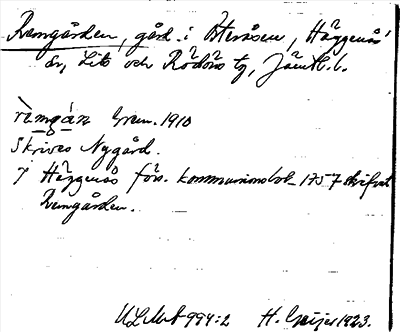 Remgården, gård i Österåsen, Häggenås
sn, Lits och Rödöns tg, Jämtl. l.
rèmgàṇ Gren. 1910
Skrives Nygård.
I Häggenås förs. kommunionsbok 1757 skrifvet
Remgården.
ULMA 994:2 H. Geijer 1923.